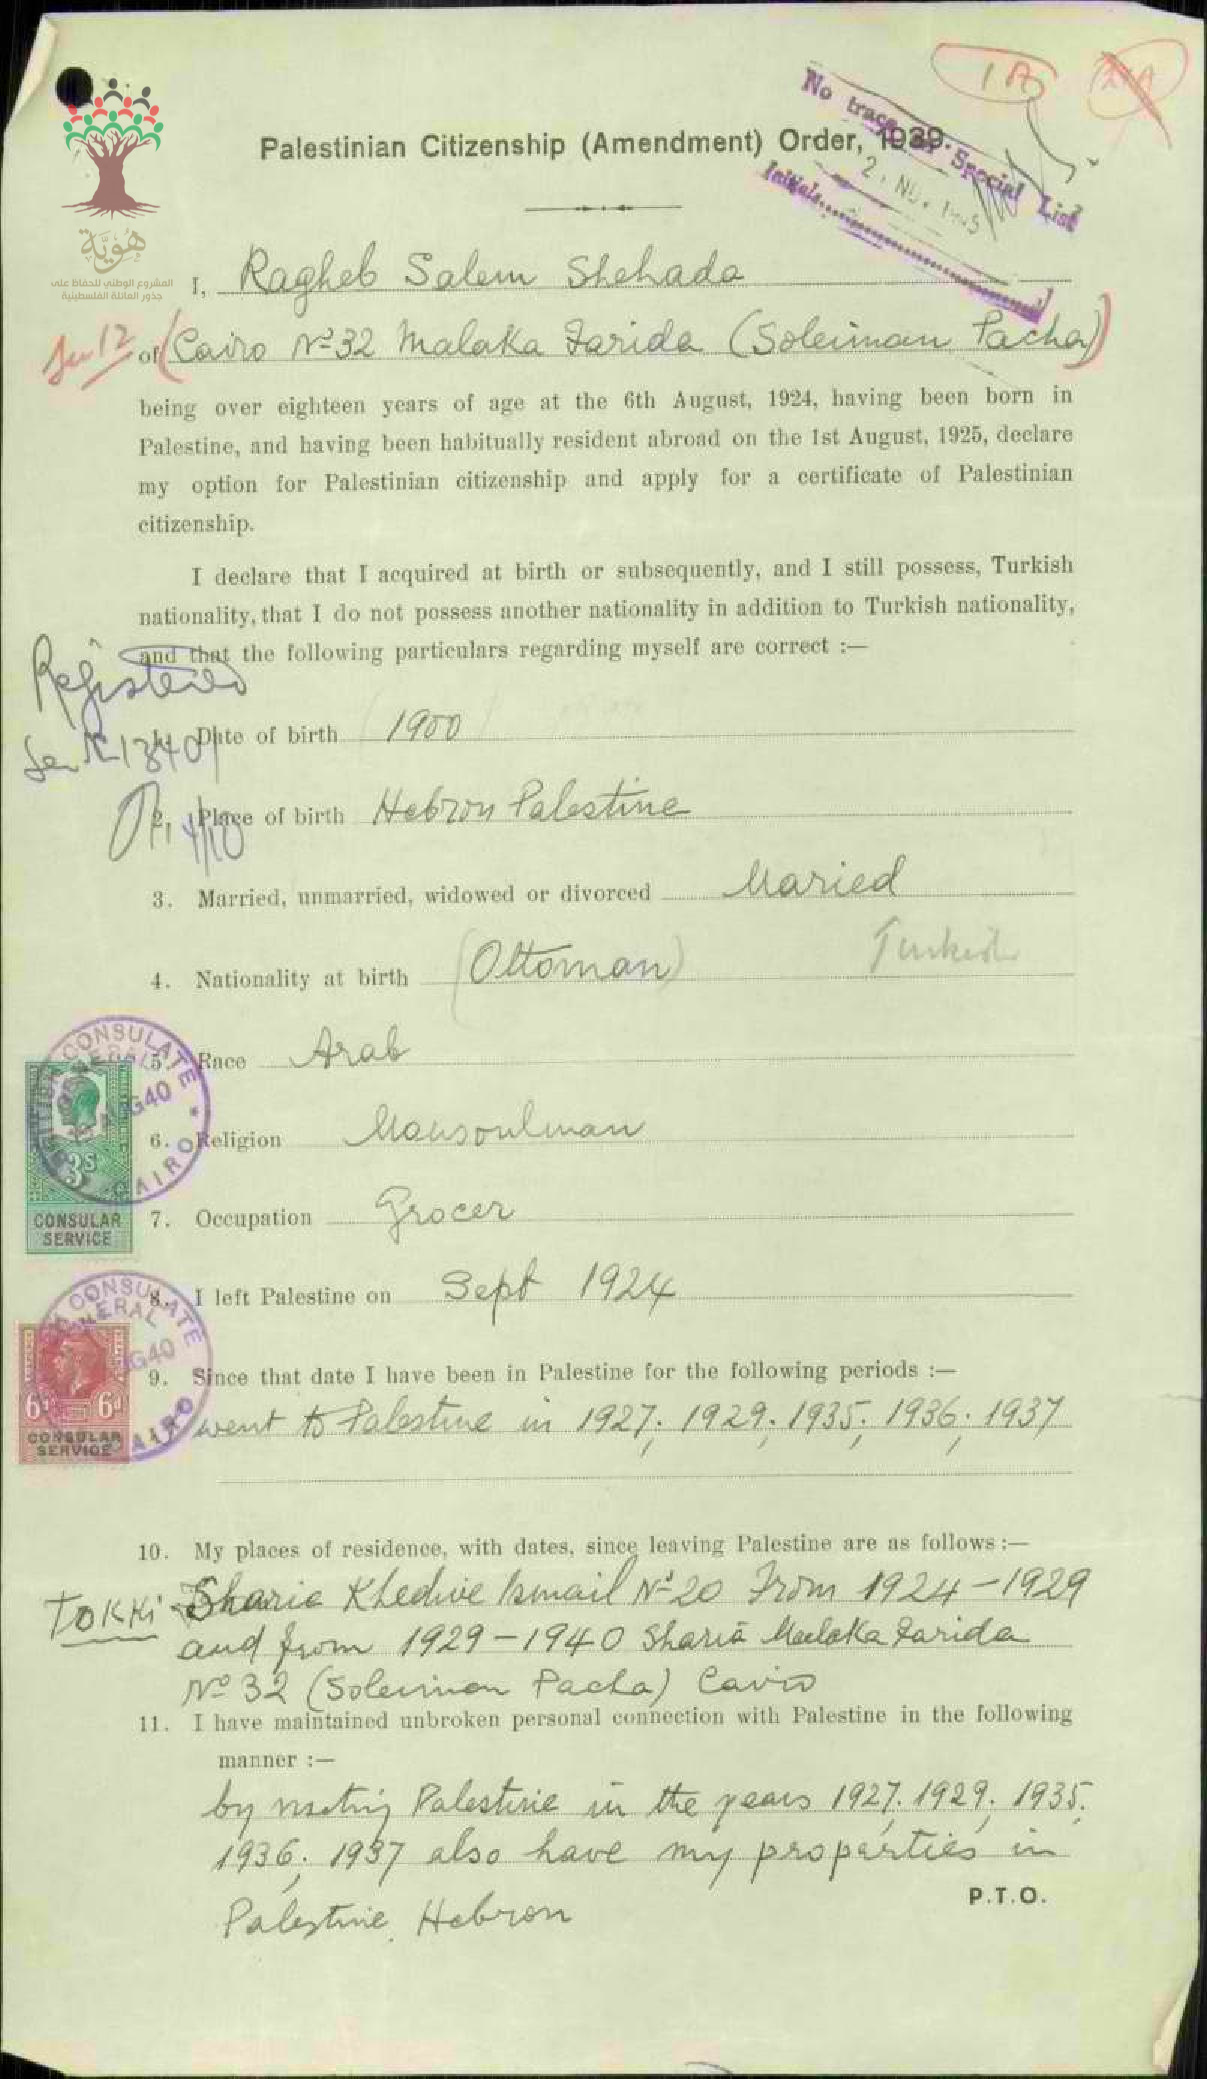 هُويَّة
المشروع الوطني للحفاظ على
جذور العائلة الفلسطينية
1A
21A
Palestinian Citizenship (Amendment) Order, 1939.
No trace Special List
2. NO.
Initials
I, Ragheb Salem Shehada
of (Cairo Nº 32 Malaka Farida (Soleiman Pacha)
being over eighteen years of age at the 6th August, 1924, having been born in
Palestine, and having been habitually resident abroad on the 1st August, 1925, declare
my option for Palestinian citizenship and apply for a certificate of Palestinian
citizenship.
I declare that I acquired at birth or subsequently, and I still possess, Turkish
nationality, that I do not possess another nationality in addition to Turkish nationality,
and that the following particulars regarding myself are correct :—
Registered
1. Date of birth (1900)
2. Place of birth Hebron Palestine
3. Married, unmarried, widowed or divorced Maried
4. Nationality at birth (Ottoman) Turkish
5. Race Arab
6. Religion Mousoulman
7. Occupation Grocer
8. I left Palestine on Sept 1924
9. Since that date I have been in Palestine for the following periods :—
went to Palestine in 1927; 1929; 1935; 1936; 1937
10. My places of residence, with dates, since leaving Palestine are as follows :—
TOKKI Sharia Khedive Ismail Nº 20 From 1924 – 1929
and from 1929 – 1940 Sharia Malaka Farida
Nº 32 (Soleiman Pacha) Cairo
11. I have maintained unbroken personal connection with Palestine in the following
manner :—
by visiting Palestine in the years 1927; 1929; 1935;
1936; 1937 also have my properties in
Palestine, Hebron
P.T.O.
BRITISH CONSULATE GENERAL CAIRO
AUG 40
3S
CONSULAR
SERVICE
CONSULATE GENERAL CAIRO
UG 40
6d 6d
CONSULAR
SERVICE